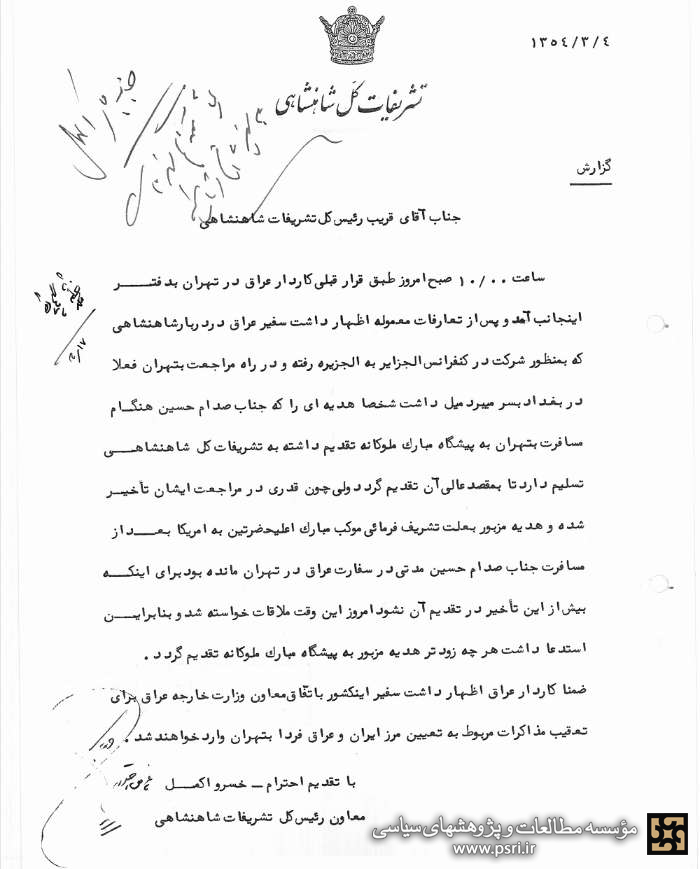 ۱۳۵٤/۳/٤
تشریفات کل شاهنشاهی
گزارش
جناب آقای قریب رئیس کل تشریفات شاهنشاهی
ساعت ۱۰/۰۰ صبح امروز طبق قرار قبلی کاردار عراق در تهران بدفتر
اینجانب آمد و پس از تعارفات معموله اظهار داشت سفیر عراق در دربار شاهنشاهی
که بمنظور شرکت در کنفرانس الجزایر به الجزیره رفته و در راه مراجعت بتهران فعلا
در بغداد بسر میبرد میل داشت شخصا هدیه ای را که جناب صدام حسین هنگام
مسافرت بتهران به پیشگاه مبارك ملوکانه تقدیم داشته به تشریفات کل شاهنشاهی
تسلیم دارد تا بمقصد عالی آن تقدیم گردد ولی چون قدری در مراجعت ایشان تأخیر
شده و هدیه مزبور بعلت تشریف فرمائی موکب مبارك اعلیحضرتین به امریکا بعد از
مسافرت جناب صدام حسین مدتی در سفارت عراق در تهران مانده بود برای اینکه
بیش از این تأخیر در تقدیم آن نشود امروز این وقت ملاقات خواسته شد و بنابراین
استدعا داشت هر چه زودتر هدیه مزبور به پیشگاه مبارك ملوکانه تقدیم گردد .
ضمنا کاردار عراق اظهار داشت سفیر اینکشور باتّفاق معاون وزارت خارجه عراق برای
تعقیب مذاکرات مربوط به تعیین مرز ایران و عراق فردا بتهران وارد خواهند شد .
با تقدیم احترام ــ خسرو اکمل
معاون رئیس کل تشریفات شاهنشاهی
مؤسسه مطالعات و پژوهشهای سیاسی
www.psri.ir